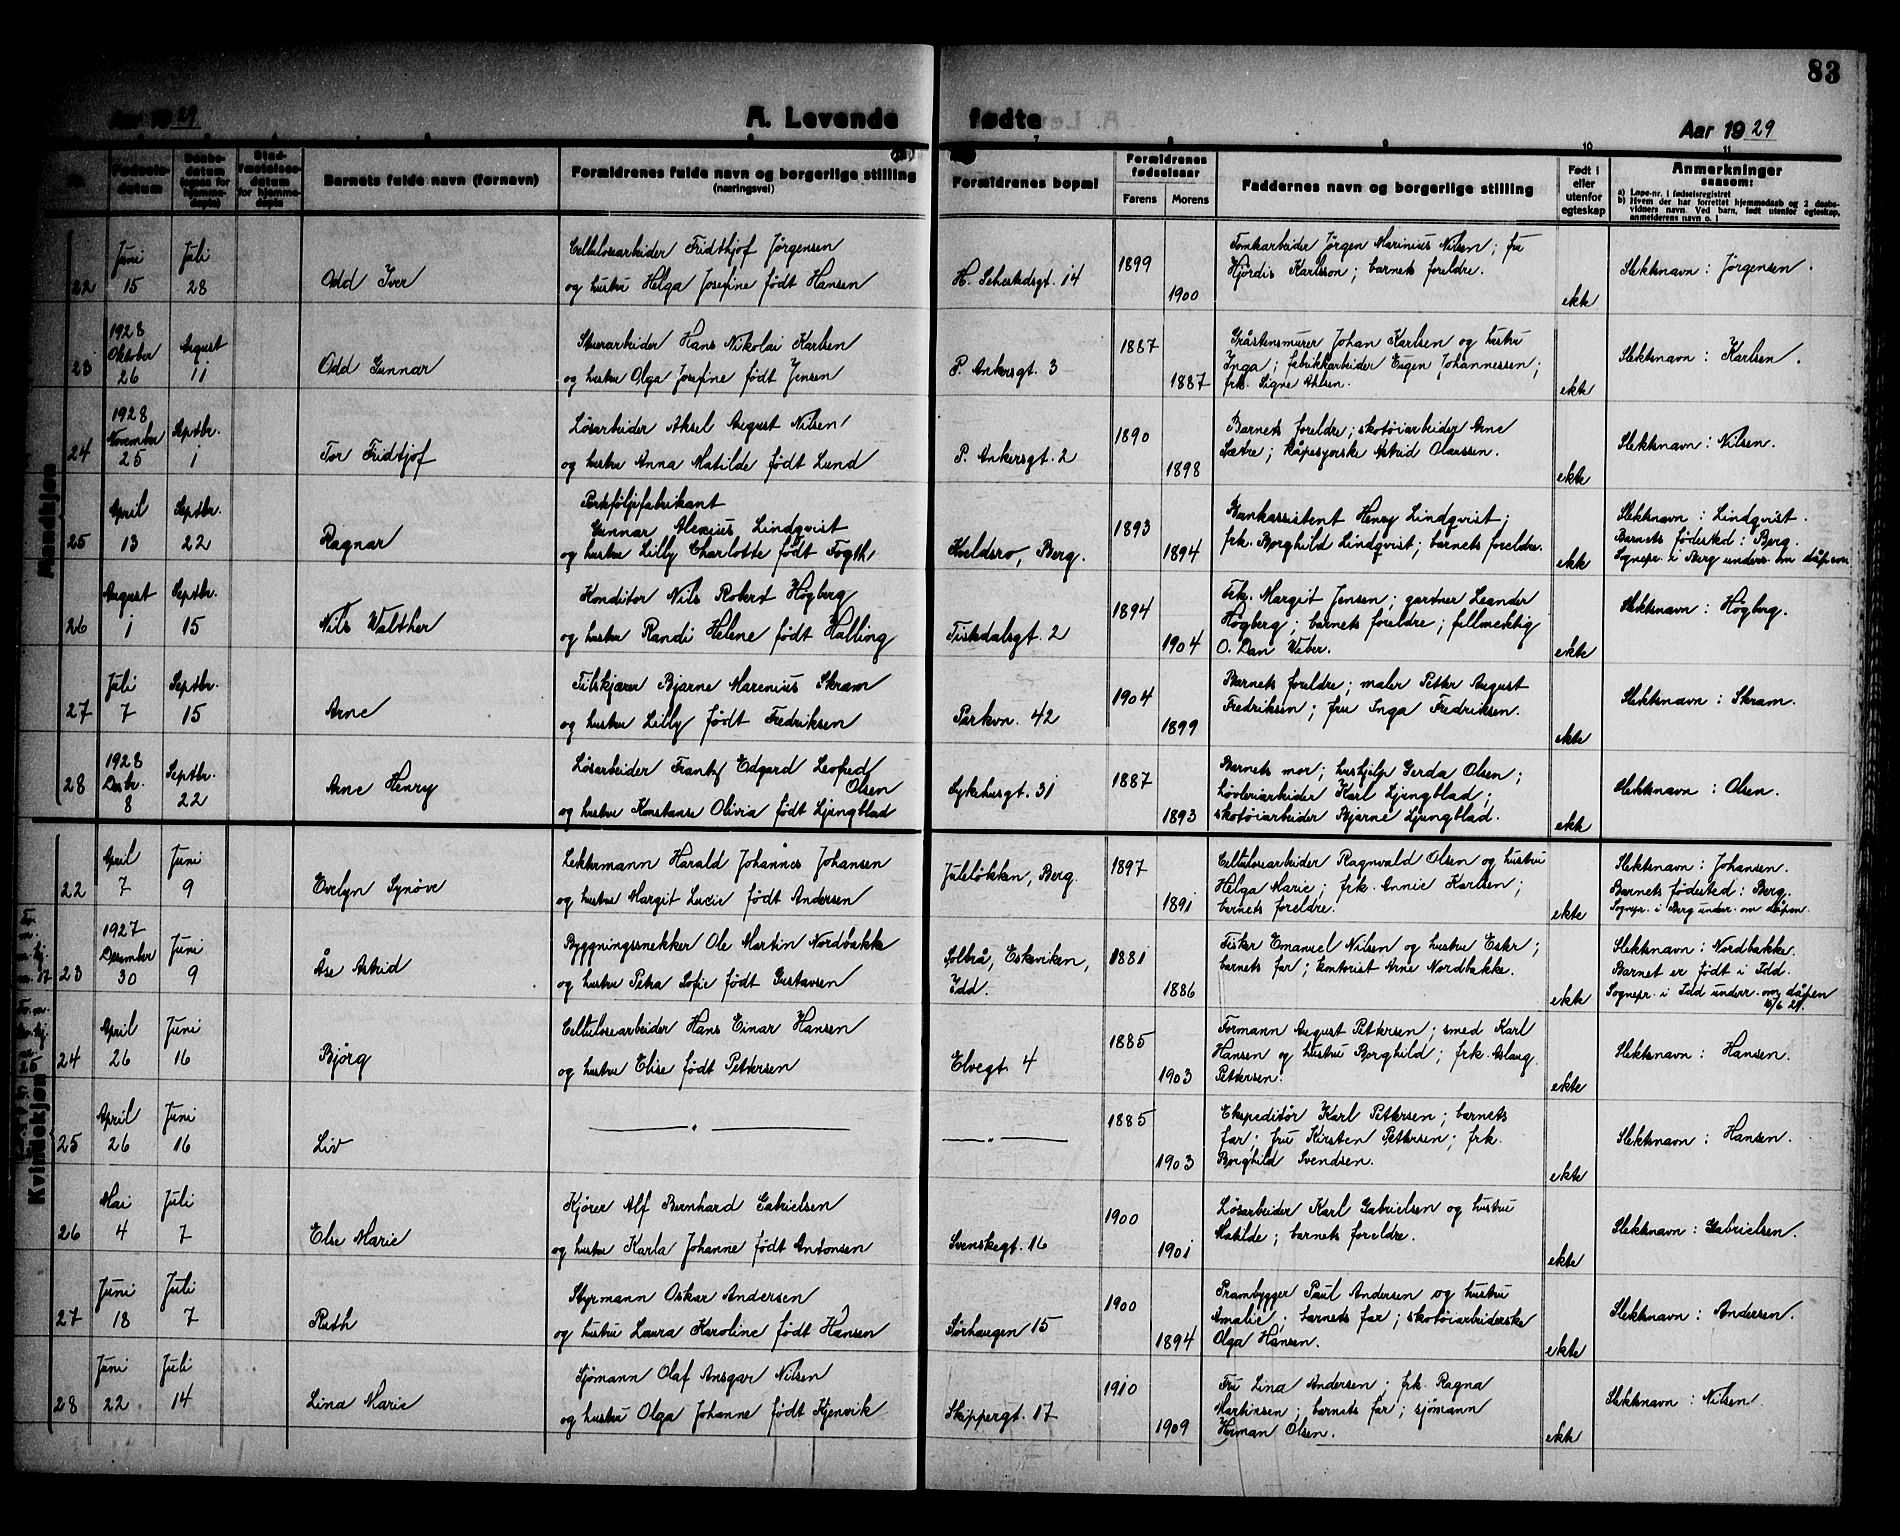 83
Aar 1929
A. Levende fødte
Aar 1929
Fødsels-datum
Barnets fulde navn (fornavn)
Forældrenes fulde navn og borgerlige stilling
(næringsvei)
Forældrenes bopæl
Forældrenes fødselsaar
Farens
Morens
Faddernes navn og borgerlige stilling
Født i eller utenfor egteskap
Anmerkninger
saasom:
a) Løpe-nr. i fødselsregistret
b) Hvem der har forrettet hjemmedaab og 2 daabs-
vidners navn. Ved barn, født utenfor egteskap,
anmelderens navn o. l
Mandkjøn
22
Juni 15
Juli 28
Odd Iver
Cellulosearbeider Fridthjof Jørgensen
og hustru Helga Josefine født Hansen
H. Sehestedsgt. 14
1899
1900
Tomtearbeider Jørgen Marinius Nilsen; fru
Hjørdis Karlsson; barnets foreldre.
ekte
Slektsnavn: Jörgensen.
23
1928 Oktober 26
August 11
Odd Gunnar
Stuerarbeider Hans Nikolai Karlsen
og hustru Olga Josefine født Jensen
P. Ankersgt. 3
1887
1887
Gråstensmurer Johan Karlsen og hustru
Inga; fabrikkarbeider Eugen Johannessen;
frk. Signe Ahlsen.
ekte
Slektsnavn: Karlsen.
24
1928 November 25
Septbr. 1
Tor Fridtjof
Løsarbeider Aksel August Nilsen
og hustru Anna Matilde født Lund
P. Ankersgt. 2
1890
1898
Barnets foreldre; skotøiarbeider Arne
Sætre; kåpesyerske Astrid Olaussen.
ekte
Slektsnavn: Nilsen.
25
April 13
Septbr. 22
Ragnar
Porteføljefabrikant
Gunnar Alexius Lindqvist
og hustru Lilly Charlotte født Fogth
Kveldsro, Berg.
1893
1894
Bankassistent Henry Lindqvist;
frk. Borghild Lindqvist; barnets foreldre.
ekte
Slektsnavn: Lindqvist.
Barnets fødested: Berg.
Sognepr. i Berg underr. om dåpen
26
August 1
Septbr. 15
Nils Walther
Konditor Nils Robert Högberg
og hustru Randi Helene født Halling
Tistedalsgt. 2
1894
1904
Frk. Margit Jensen; gartner Leander
Högberg; barnets foreldre; fullmektig
O. Dan Weber.
ekte
Slektsnavn: Högberg.
27
Juli 7
Septbr. 15
Arne
Tilskjærer Bjarne Marenius Skram
og hustru Lilly født Fredriksen
Parkvn. 42
1904
1899
Barnets foreldre; maler Petter August
Fredriksen; fru Inga Fredriksen.
ekte
Slektsnavn: Skram.
28
1928 Desbr. 8
Septbr. 22
Arne Henry
Løsarbeider Frantz Edgard Leopold
Olsen
og hustru Konstanse Olivia født Ljungblad
Sykehusgt. 31
1887
1893
Barnets mor; hushjelp Gerda Olsen;
Løvleriarbeider Karl Ljungblad;
skotøiarbeider Bjarne Ljungblad.
ekte
Slektsnavn: Olsen.
Kvindekjøn
22
April 7
Juni 9
Evelyn Synøve
Lektermann Harald Johannes Johansen
og hustru Margit Lucie født Andersen
Juleløkken, Berg.
1897
1891
Cellulosearbeider Ragnvald Olsen og hustru
Helga Marie; frk. Annie Karlsen;
barnets foreldre.
ekte
Slektsnavn: Johansen.
Barnets fødested: Berg.
Sognepr. i Berg under. om dåpen.
23
1927 Desember 30
Juni 9
Åse Astrid
Byggningssnekker Ole Martin Nordbakke
og hustru Petra Sofie født Gustavsen
Solbrå, Eskeviken,
Idd.
1881
1886
Fisker Emanuel Nilsen og hustru Ester;
barnets far; kontorist Arne Nordbakke.
ekte
Slektsnavn: Nordbakke.
Barnet er født i Idd.
Sognepr. i Idd underr. om dåpen
24
April 26
Juni 16
Bjørg
Cellulosearbeider Hans Einar Hansen
og hustru Elise født Pettersen
Elvegt. 4
1885
1903
Formann August Pettersen; smed Karl
Hansen og hustru Borghild; frk. Aslaug
Pettersen.
ekte
Slektsnavn: Hansen.
25
April 26
Juni 16
Liv
— „ —
— „ —
1885
1903
Ekspeditør Karl Pettersen; barnets
far; fru Kirsten Pettersen; frk.
Borghild Svendsen.
ekte
Slektsnavn: Hansen.
26
Mai 4
Juli 7
Else Marie
Kjører Alf Bernhard Gabrielsen
og hustru Karla Johanne født Antonsen
Svenskegt. 16
1900
1901
Løsarbeider Karl Gabrielsen og hustru
Matilde; barnets foreldre.
ekte
Slektsnavn: Gabrielsen.
27
Juni 18
Juli 7
Ruth
Styrmann Oskar Andersen
og hustru Laura Karoline født Hansen
Sörhaugen 15
1900
1894
Prambygger Paul Andersen og hustru
Amalie; barnets far; skotøiarbeiderske
Olga Hansen.
ekte
Slektsnavn: Andersen.
28
Juni 22
Juli 14
Lina Marie
Sjømann Olaf Ansgar Nilsen
og hustru Olga Johanne født Kjenvik
Skippergt. 17
1910
1909
Fru Lina Andersen; frk. Ragna
Martinsen; barnets far; sjømann
Herman Olsen.
ekte
Slektsnavn: Nilsen